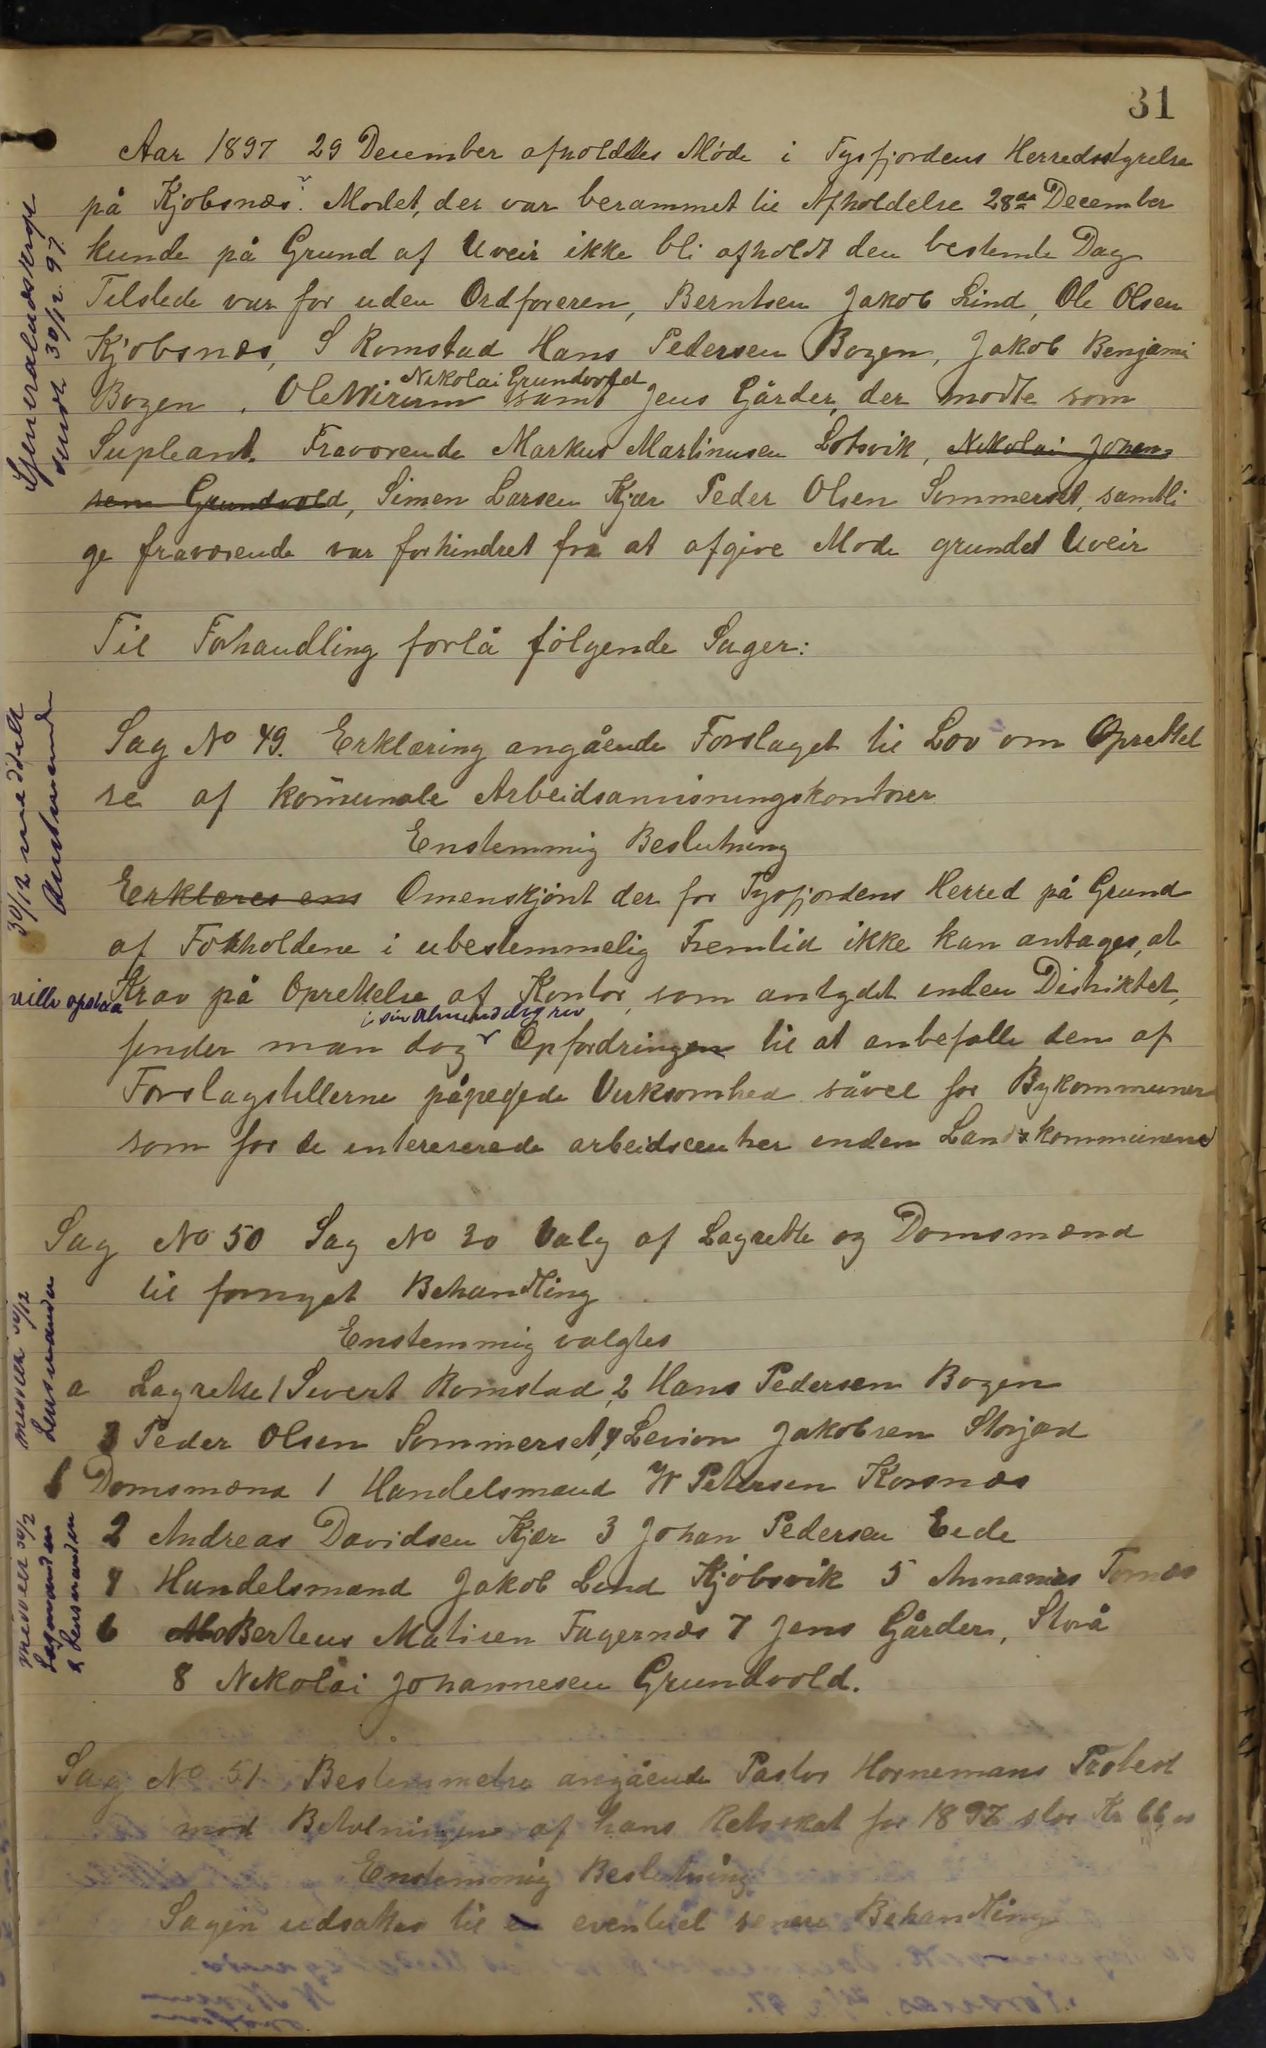 31
Aar 1897 29 December afholdtes Møde i Tysfjordens Herredsstyrelse
på Kjøbsnæs. Mødet, der var berammet til Afholdelse 28de December
kunde på Grund af Uveir ikke bli afholdt den bestemte Dag
Tilstede var for uden Ordføreren, Berntsen Jakob Lind, Ole Olsen
Kjøbsnæs, S Romstad Hans Pedersen Bogen, Jakob Benjami
Nikolai Grundvold
Bogen, Ole samt Jens Gårder, der mødte som
Supleant. Fraværende Markus Martinusen Lotsvik, Nikolai Johan-
sen Grundvold, Simen Larsen Kjær Peder Olsen Sommerset, samtli
ge fraværende var forhindret fra at afgive Møde grundet Uveir
Gjenoraludskrift
sendt 30/12 97
Til Forhandling forlå følgende Sager:
Sag No 49. Erklæring angående Forslaget til Lov om Oprettel
se af komunale Arbeidsanvisningskontorer
Enstemmig Beslutning
Erklæres ens Omenskjønt der for Tysfjordens Herred på Grund
af Forholdene i ubestemmelig Fremtid ikke kan antages, at
ville opstaa Krav på Oprettelse af Kontor, som antydet inden Distriktet,
i sin Almindelighed
finder man dog Opfordringen til at anbefalle den af
Forslagstillerne påpegede Virksomhed såvel for Bykommuner
som for de intereserede arbeidscenter inden Landskommunene
30/12 meddelt
Amtmanden
Sag No 50 Sag No 30 Valg af Lagrette og Domsmænd
til fornyet Behandling
Enstemmig valgtes
a Lagrette 1 Sivert Romstad, 2 Hans Pedersen Bogen
3 Peder Olsen Sommerset, 4 Levion Jakobsen Storjord
b Domsmænd 1 Handelsmand W Petersen Korsnæs
2 Andreas Davidsen Kjær 3 Johan Pedersen Eide
4 Handelsmand Jakob Lind Kjøbsvik 5 Annanias Tornæs
6 Berteus Matisen Fagernæs 7 Jens Gårder, Storå
8 Nikolai Johannesen Grundvold.
meddelt 30/12
Lensmanden
meddelt 30/12
Lagmanden
& Lensmanden
Sag No 51 Bestemmelse angående Pastor Hornemans Protest
mod Betalningen af hans Restskat for 1897 stor Kr 66
Enstemmig Beslutning
Sagen udsættes til en eventuel senere Behandling